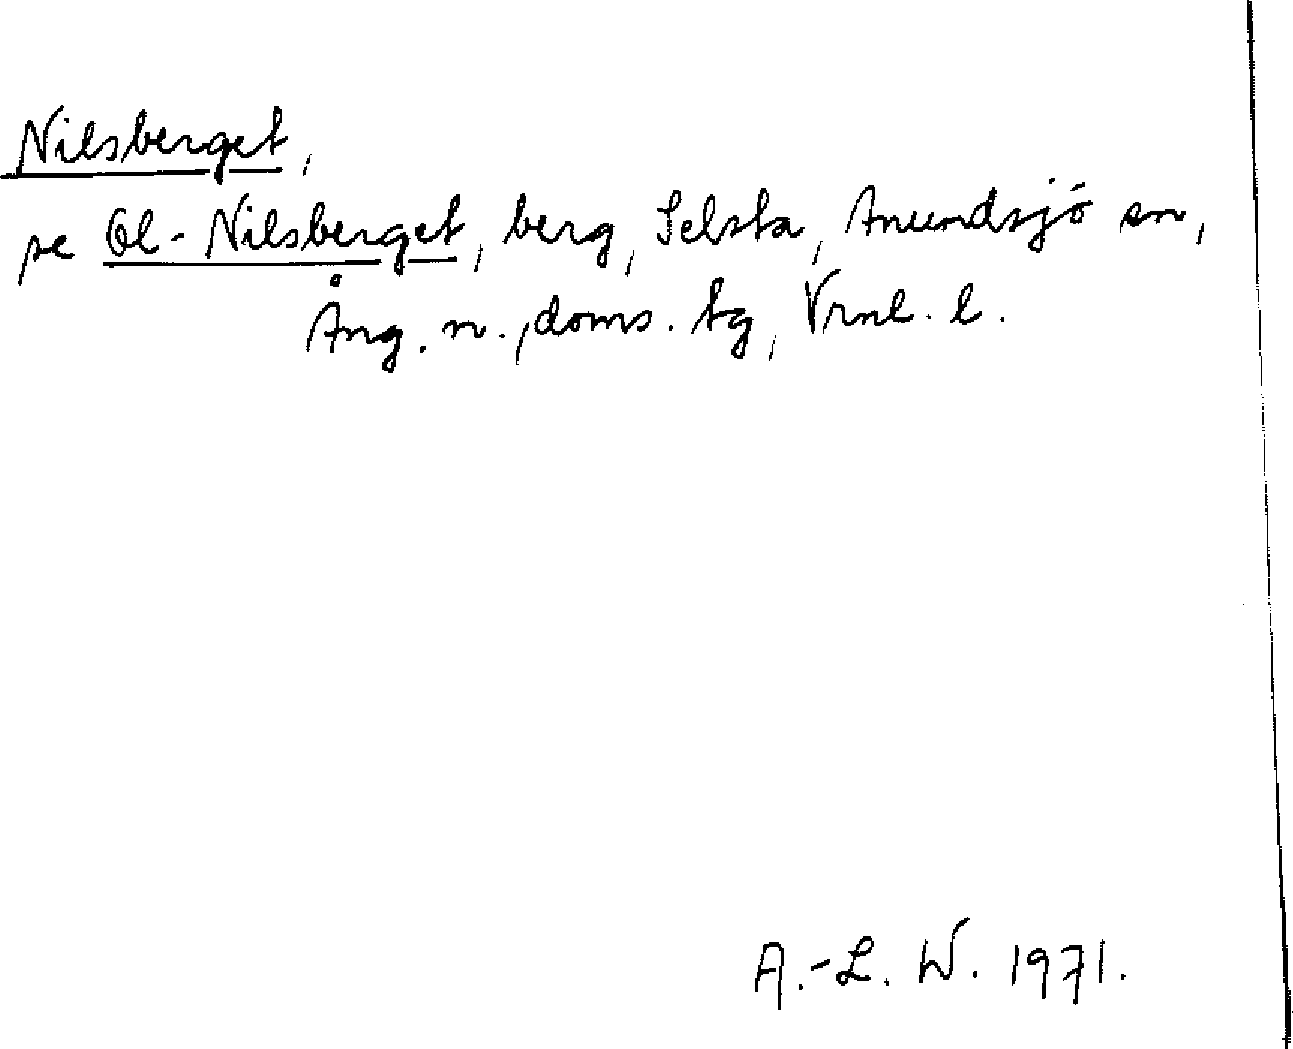 Nilsberget,
se Ol-Nilsberget, berg, Selsta, Anundsjö sn,
Ång. n., doms. tg, Vrnl. l.
A.-L. W. 1971.